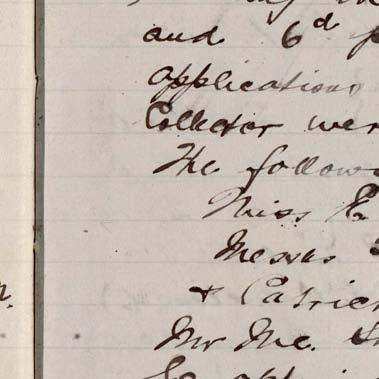 and 6d
applications
Collector wer
The follow
Miss E
Messrs
+ Catrick
Mr Mc.